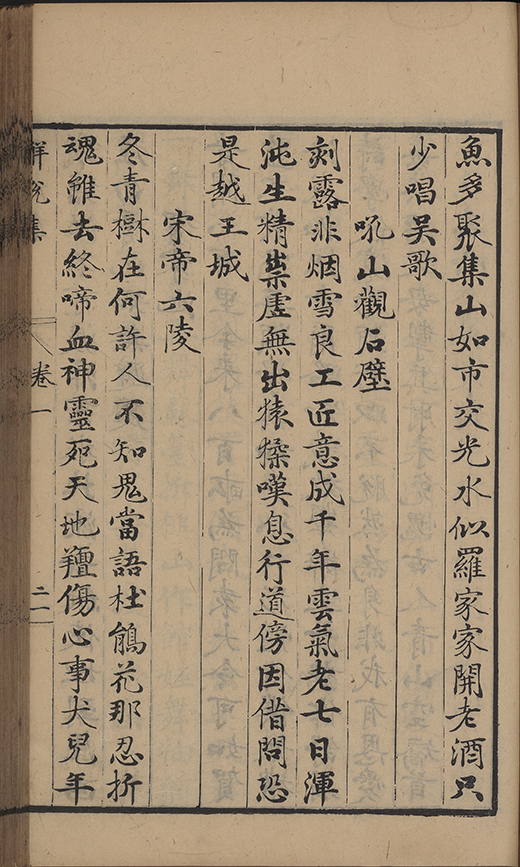 魚多聚集山如市交光水似羅家家開老酒只
少唱吳歌
吼山觀石壁
刻露非烟雪良工匠意成千年雲氣老七日渾
沌生精祟虛無出猿猱嘆息行道傍因借問恐
是越王城
宋帝六陵
冬青樹在何許人不知鬼當語杜鵑花那忍折
魂雖去終啼血神靈死天地羶傷心事犬兒年
解脫集
卷一
二